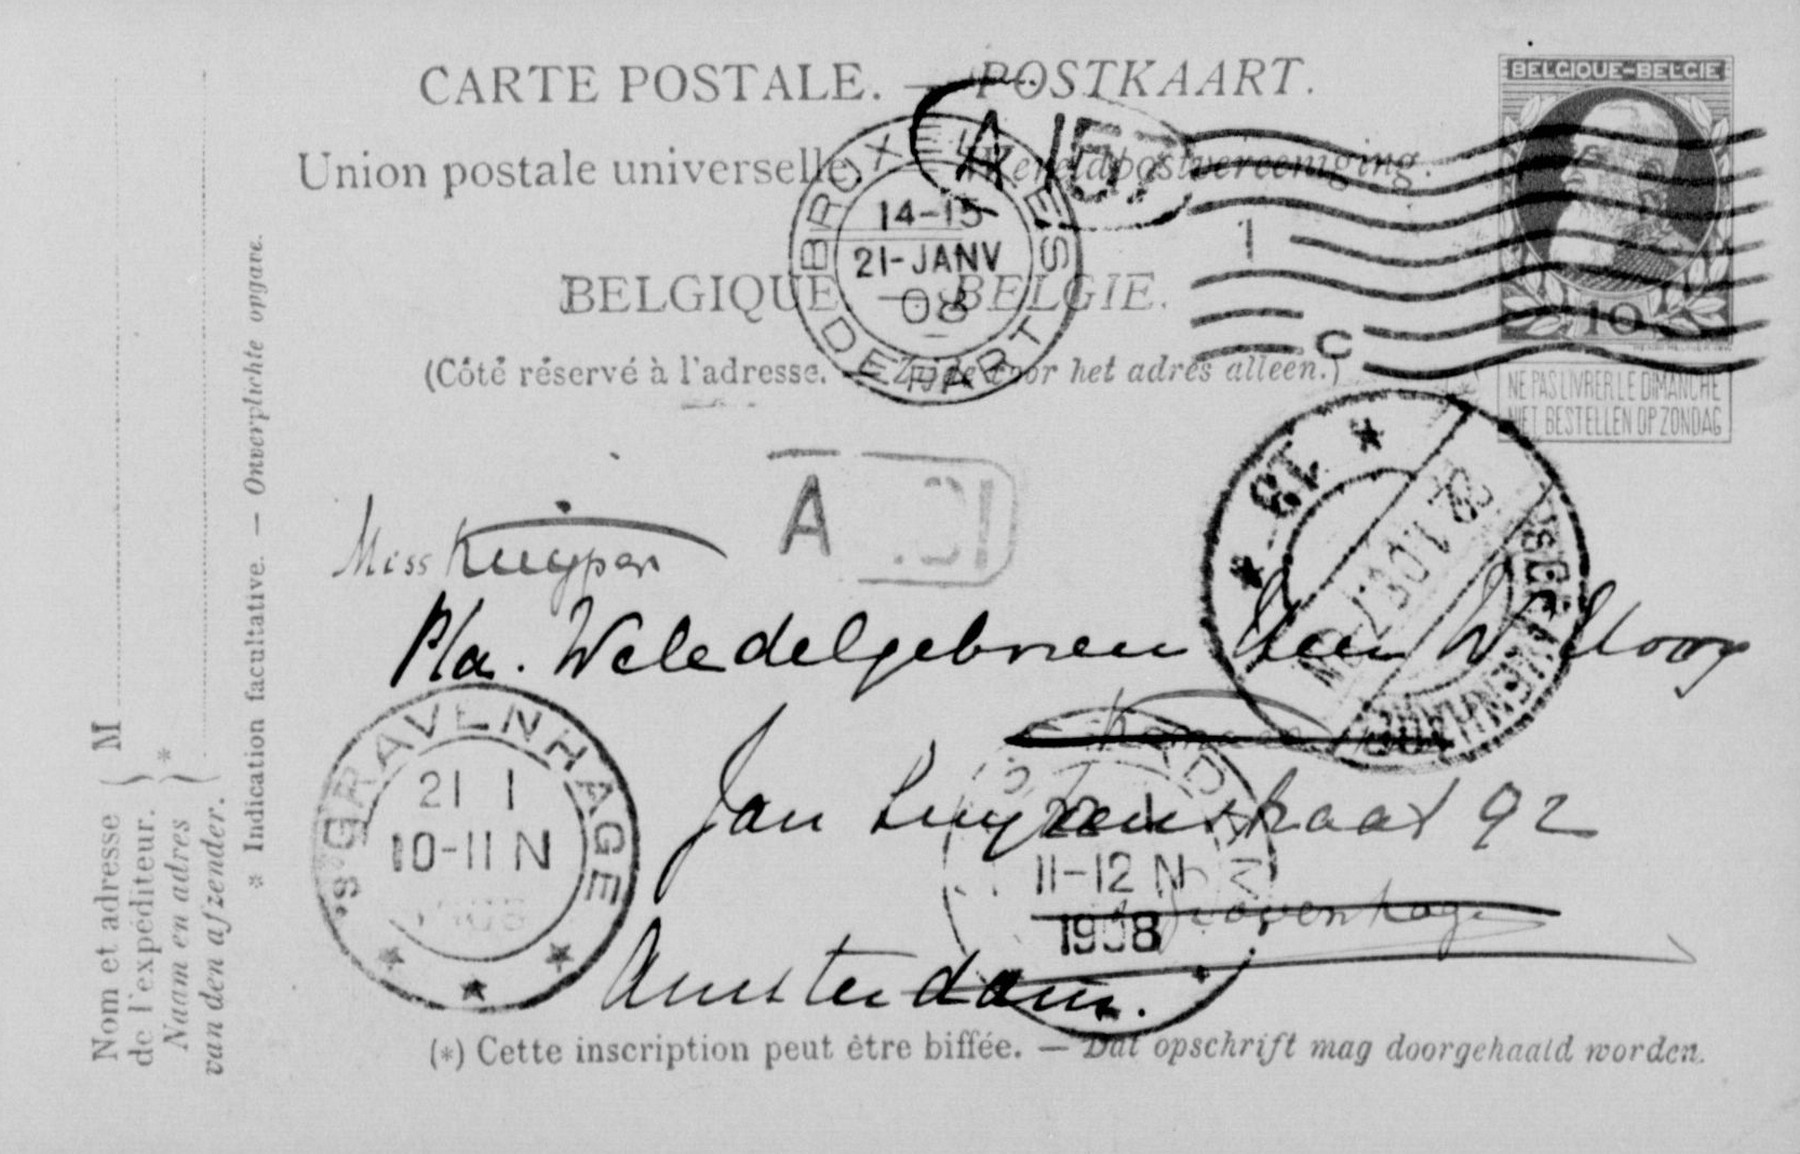 CARTE POSTALE. — POSTKAART.
BELGIQUE-BELGIE
Union postale universelle. — Wereldpostvereeniging.
A 15
BRUXELLES
14-15
21-JANV
08
DEPART
1
C
10
BELGIQUE — BELGIE.
(Côté réservé à l'adresse. — Zijde voor het adres alleen.)
NE PAS LIVRER LE DIMANCHE
NIET BESTELLEN OP ZONDAG
A
Miss Kuyper
13
'S GRAVENHAGE
Weledelgeboren Heer W.
'S GRAVENHAGE
21 1
10-11 N
1908
Jan Luykenstraat 92
22 1
11-12 N
1908
Gravenhage
Amsterdam.
(*) Cette inscription peut être biffée. — Dat opschrift mag doorgehaald worden.
Nom et adresse
de l'expéditeur.
Naam en adres
van den afzender.
M
*
* Indication facultative. — Onverplichte opgave.